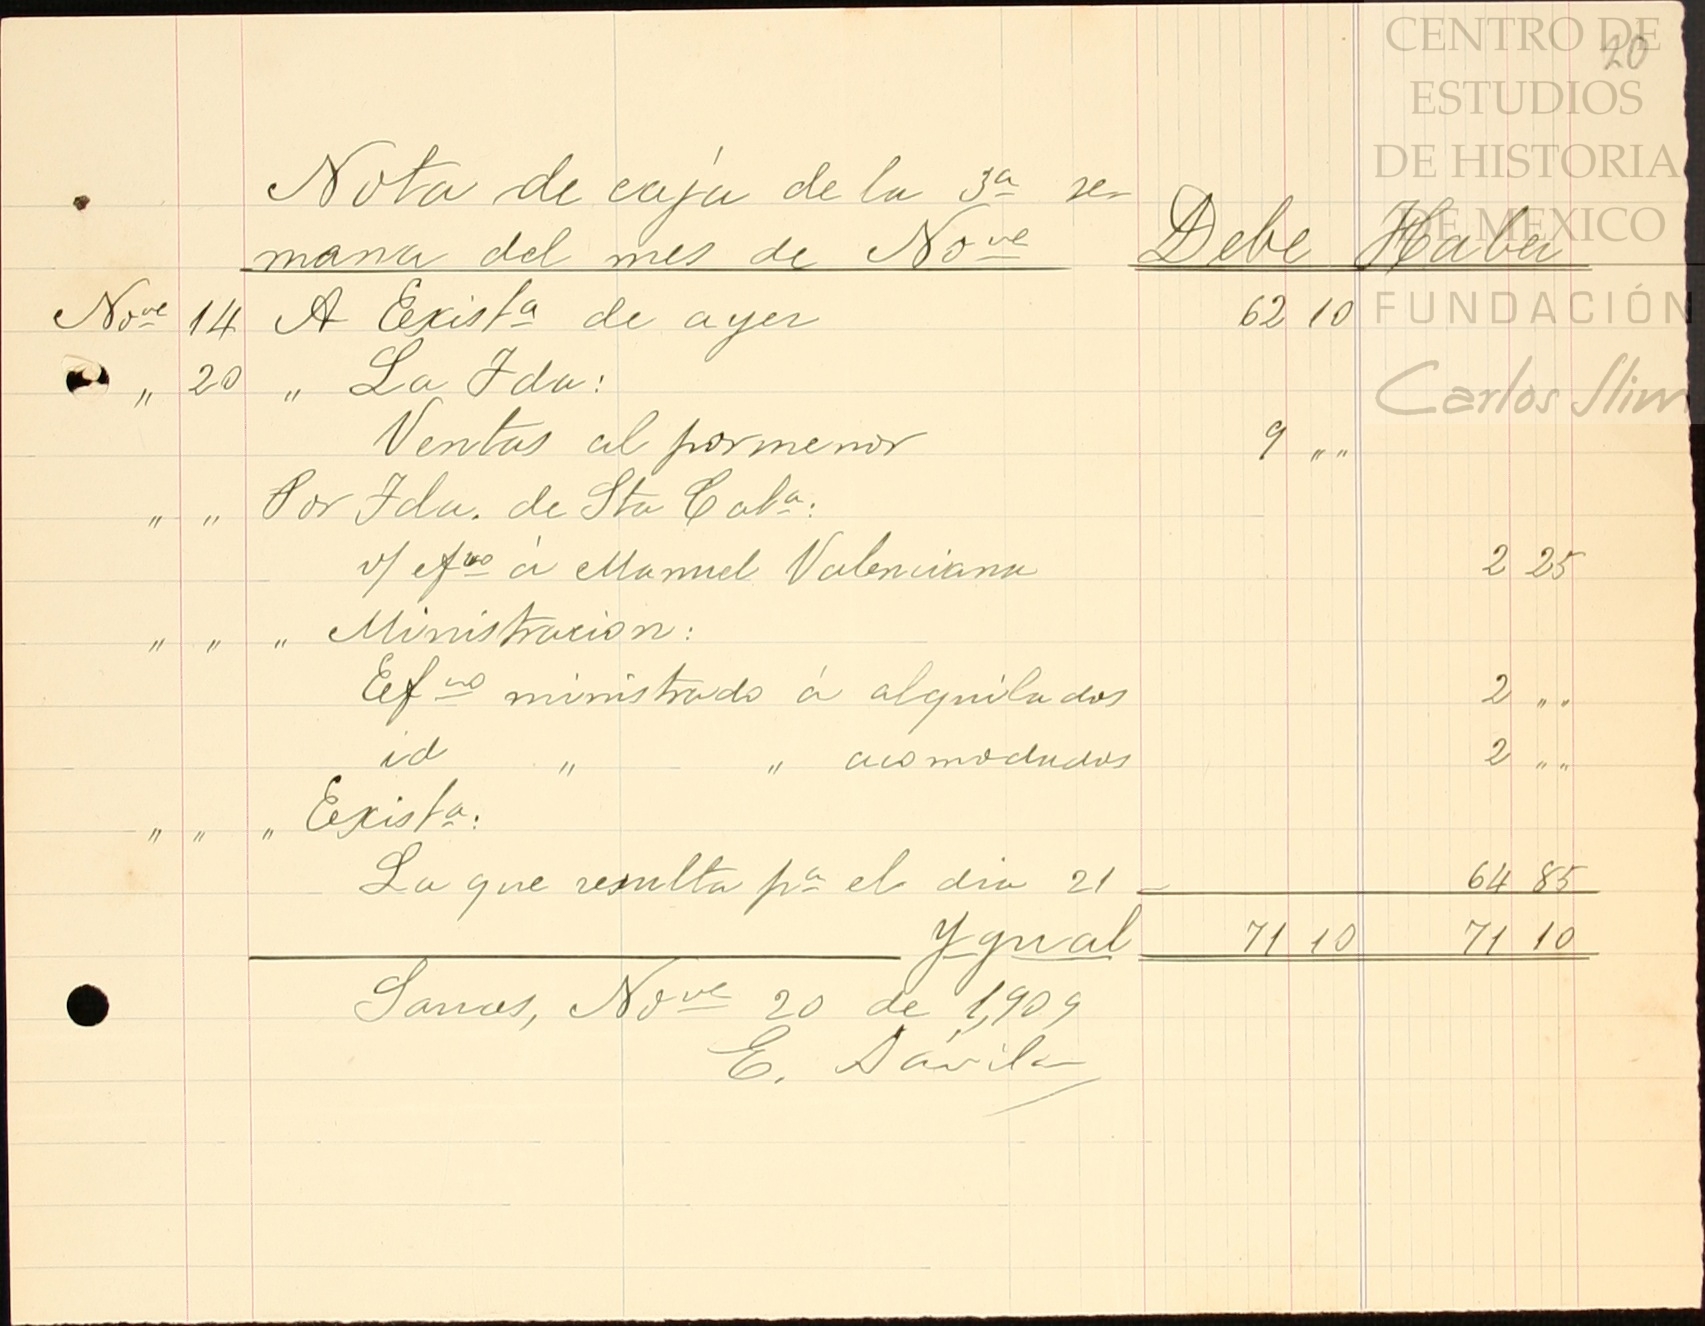 CENTRO DE
ESTUDIOS
DE HISTORIA
DE MEXICO
FUNDACIÓN
Carlos Slim
20
Nota de caja de la 3ª se-
mana del mes de Nove Debe Haber
Nove 14 A Existª de ayer 62 10
" 20 " La Fda:
Ventas al pormenor 9 " "
" " Por Fda. de Sta Catª:
v/ efvo á Manuel Valenciana 2 25
" " " Ministracion:
Efvo ministrado á alquilados 2 " "
id " " acomodados 2 " "
" " " Existª:
La que resulta pª el dia 21 64 85
Ygual 71 10 71 10
Nove 20 de 1,909
E. Dávila